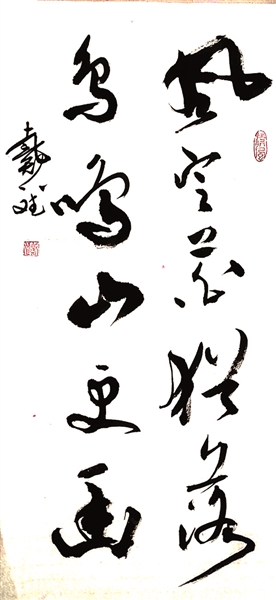 風定花猶落
鳥鳴山更幽
戴